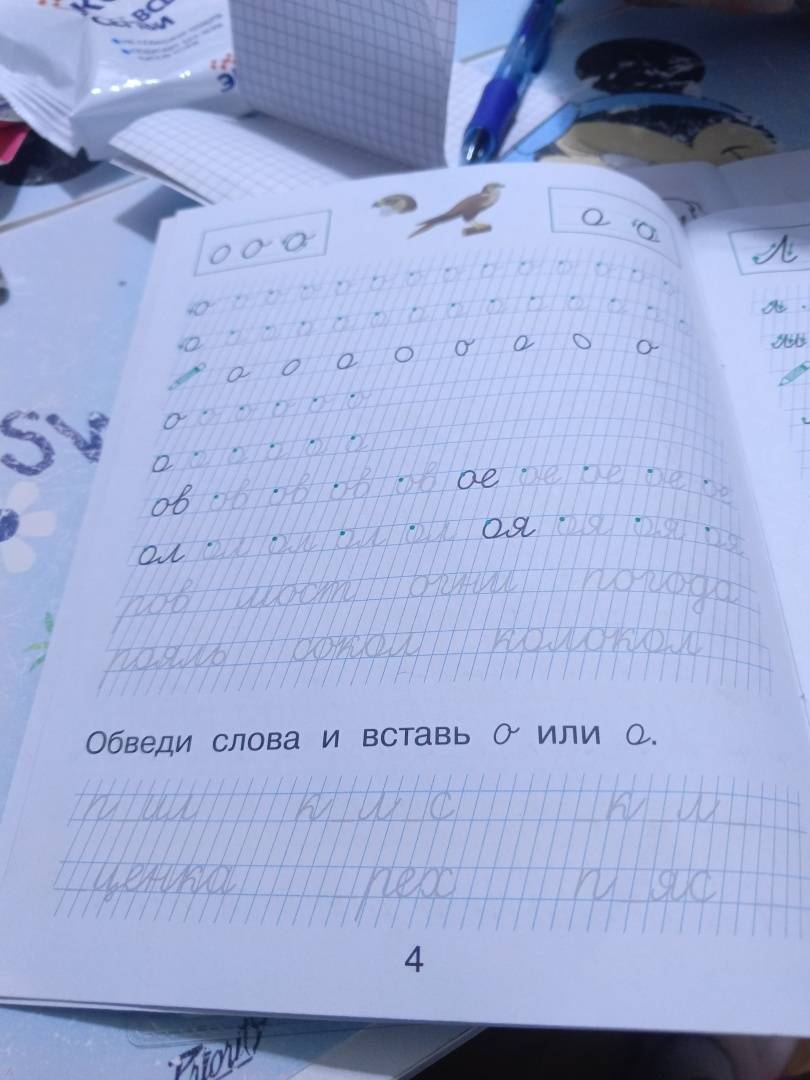 ВСЕ
о о о о о
Л
о о о о о о о о о о о о о о
о о о о о о о о о о о о о о
а о а о о а о о
о о о о о о
а а а а а а
ов ов ов ов ов ое ое ое ое ое
ол ол ол ол ол оя оя оя оя
ров мост огни погода
рояль сокол колокол
Обведи слова и вставь о или а.
п_ил к_л_с _к_л_
_ценка _рех п_яс
4
Priority